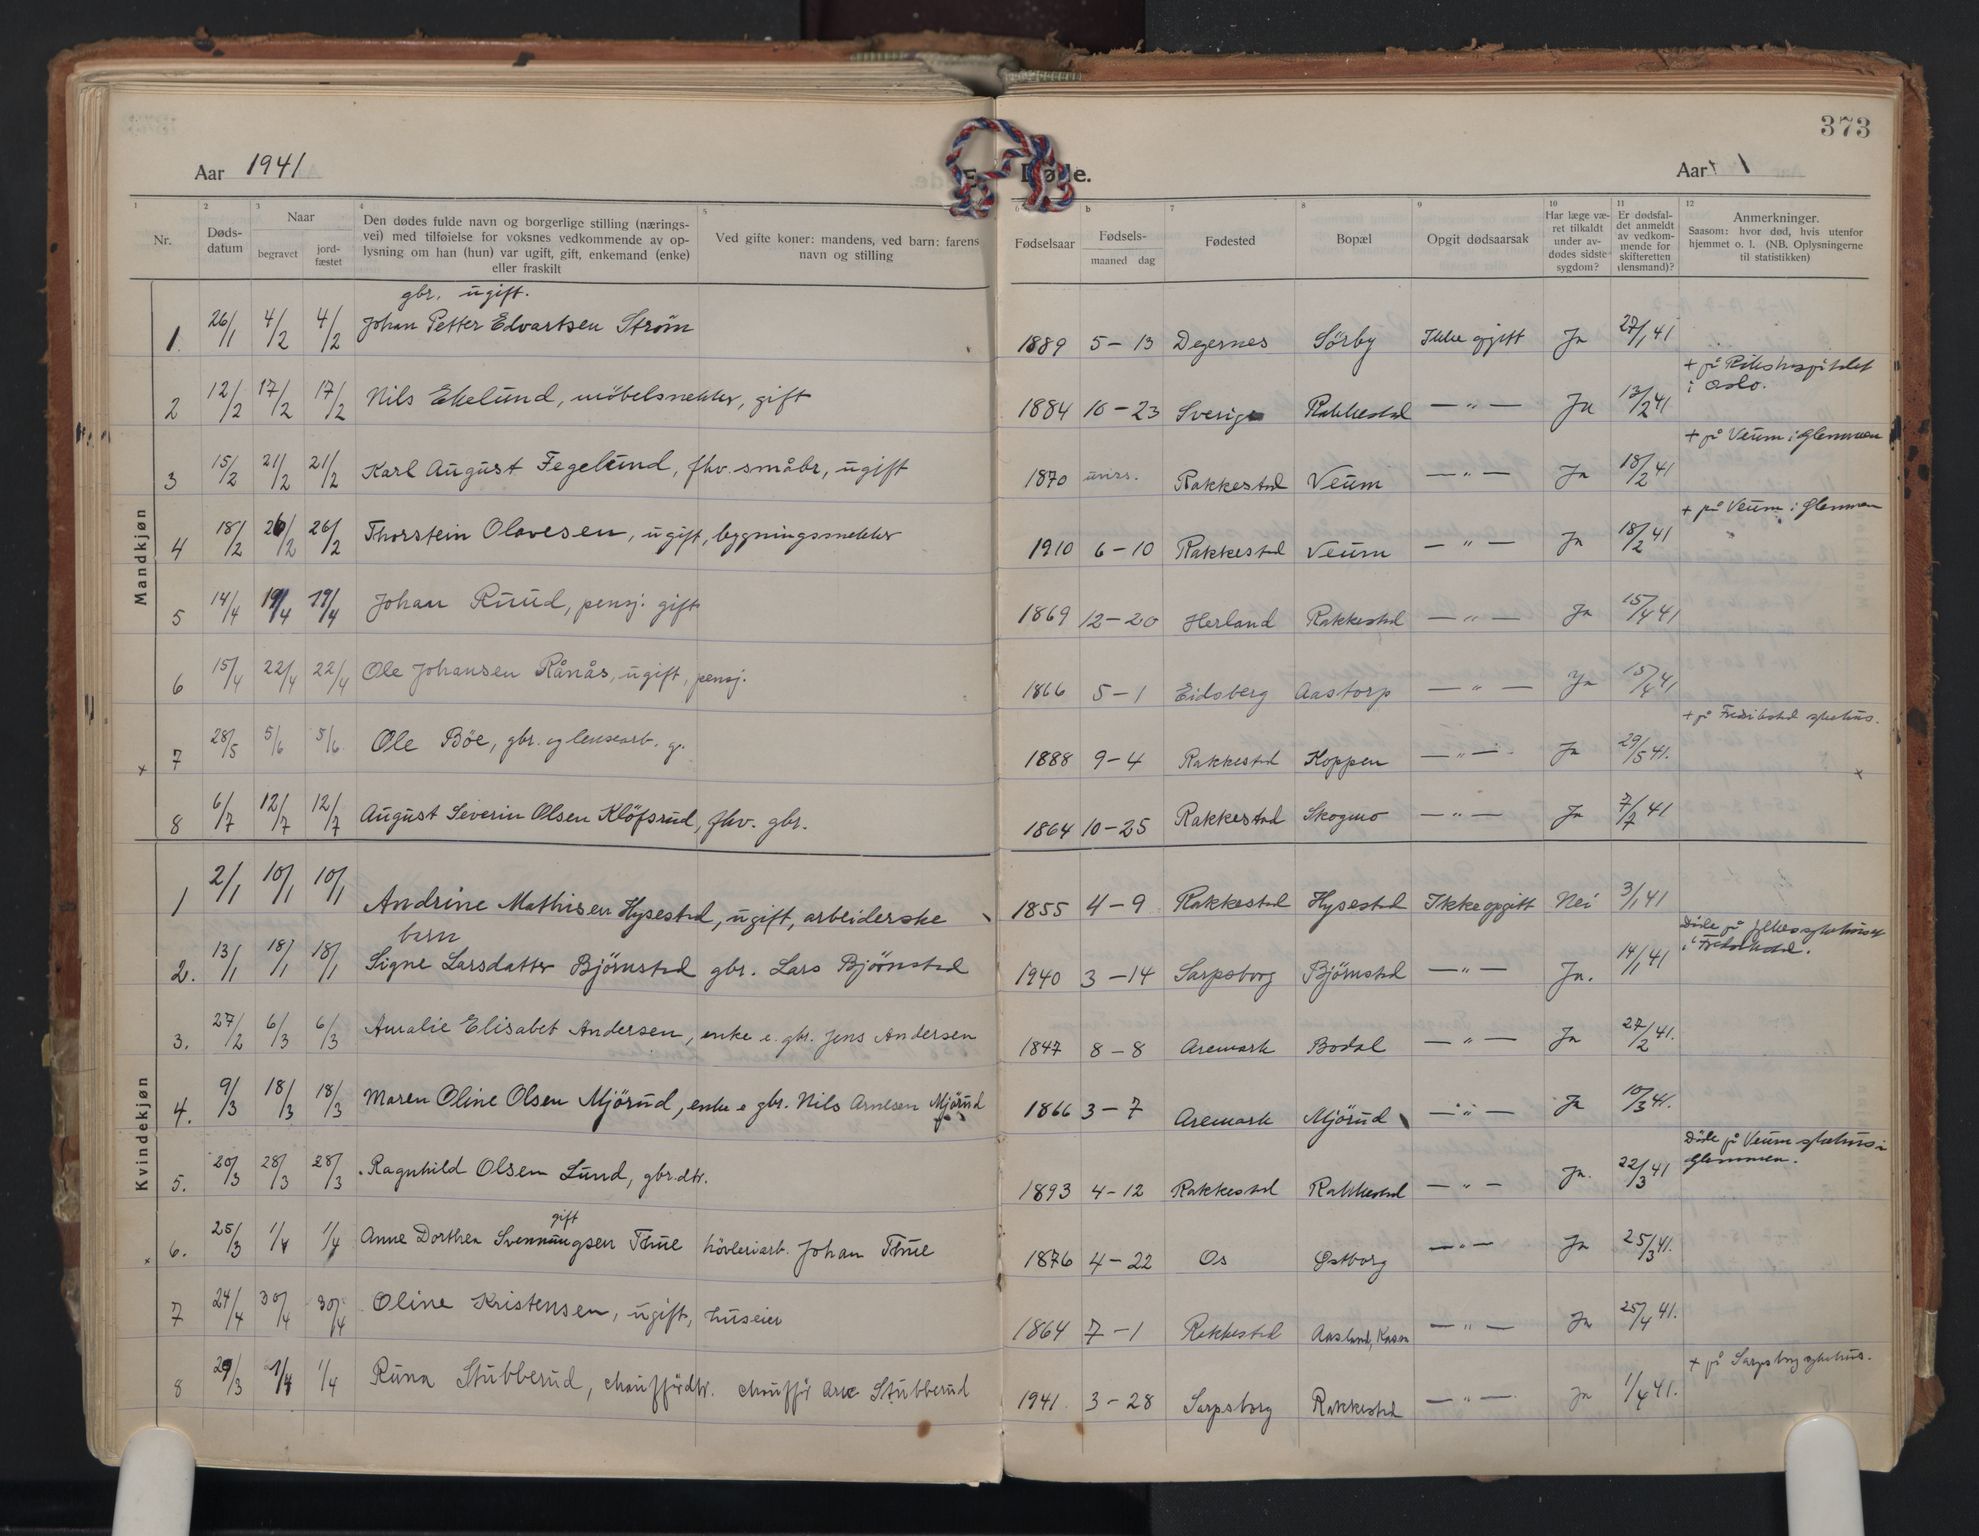 373
Aar 1941
Døde.
Aar 1
1 2 3 4 5 6 b 7 8 9 10 11 12
Nr.
Døds-
datum
Naar
begravet
jord-
fæstet
Den dødes fulde navn og borgerlige stilling (nærings-
vei) med tilføielse for voksnes vedkommende av op-
lysning om han (hun) var ugift, gift, enkemand (enke)
eller fraskilt
Ved gifte koner: mandens, ved barn: farens
navn og stilling
Fødselsaar
Fødsels-
maaned dag
Fødested
Bopæl
Opgit dødsaarsak
Har læge væ-
ret tilkaldt
under av-
dødes sidste
sygdom?
Er dødsfal-
det anmeldt
av vedkom-
mende for
skifteretten
(lensmand)?
Anmerkninger.
Saasom: hvor død, hvis utenfor
hjemmet o. l. (NB. Oplysningerne
til statistikken)
Mandkjøn
gbr. ugift.
1. 26/1 4/2 4/2 Johan Petter Edvartsen Strøm 1889 5 – 13 Degernes Sörby Ikke opgitt Ja 27/1 41
+ på Rikshospitalet
i Oslo.
2 12/2 17/2 17/2 Nils Ekelund, möbelsnekker, gift 1884 10 – 23 Sverige Rakkestad — " — Ja 13/2 41
+ på Veum i Glemmen
3 15/2 21/2 21/2 Karl August Fegelund, fhv. småbr, ugift 1870 Rakkestad Veum — " — Ja 18/2 41
+ på Veum i Glemmen
4 18/2 26/2 26/2 Thorstein Olavesen, ugift, bygningssnekker 1910 6 – 10 Rakkestad Veum — " — Ja 18/2 41
5 14/4 19/4 19/4 Johan Ruud, pensj. gift 1869 12 – 20 Herland Rakkestad — " — Ja 15/4 41
6 15/4 22/4 22/4 Ole Johansen Rånås, ugift, pensj. 1866 5 – 1 Eidsberg Aastorp — " — Ja 15/4 41
+ på Fredrikstad sykehus.
x 7 28/5 5/6 5/6 Ole Böe, gbr. og lensearb. g. 1888 9 – 4 Rakkestad Koppen — " — Ja 29/5 41. x
8 6/7 12/7 12/7 August Severin Olsen Klöfsrud, fhv. gbr. 1864 10 – 25 Rakkestad Skogmo — " — Ja 7/7 41
Kvindekjøn
1 2/1 10/1 10/1 Andrine Mathisen Hysestad, ugift, arbeiderske 1855 4 – 9 Rakkestad Hysestad Ikke opgitt Nei 3/1 41
barn
Döde på sykehuset
i Fredrikstad.
2. 13/1 18/1 18/1 Signe Larsdatter Björnstad gbr. Lars Björnstad 1940 3 – 14 Sarpsborg Björnstad — " — Ja. 14/1 41
3. 27/2 6/3 6/3 Amalie Elisabet Andersen, enke e. gbr. Jens Andersen 1847 8 – 8 Aremark Bodal — " — Ja 27/2 41.
4. 9/3 18/3 18/3 Maren Oline Olsen Mjörud, enke e gbr. Nils Arnesen Mjörud 1866 3 – 7 Aremark Mjörud — " — Ja 10/3 41.
Döde på Veum sykehus i
Glemmen.
5. 20/3 28/3 28/3 Ragnhild Olsen Lund, gbr.dtr. 1893 4 – 12 Rakkestad Rakkestad — " — Ja. 22/3 41
gift
x 6. 25/3 1/4 1/4 Anne Dorthea Svenningsen Thue hövleriarb. Johan Thue 1876 4 – 22 Os Østborg — " — Ja 25/3 41.
7 24/4 30/4 30/4 Oline Kristensen, ugift, huseier 1864 7 – 1 Rakkestad Aaslund, Kasa — " — Ja 25/4 41.
+ på Sarpsborg sykehus.
8 29/3 1/4 1/4 Runa Stubberud, chauffördtr. chaufför Stubberud 1941. 3 – 28 Sarpsborg Rakkestad — " — Ja 1/4 41.